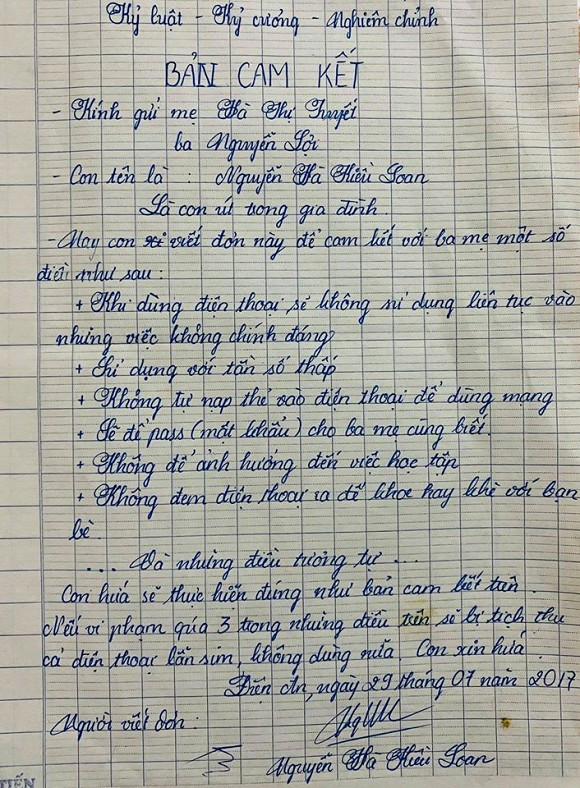 Kỷ luật - Kỷ cương - Nghiêm chỉnh
BẢN CAM KẾT
- Kính gửi mẹ Hà Thị Tuyết
ba Nguyễn Lợi
- Con tên là : Nguyễn Hà Hiếu Loan
Là con út trong gia đình.
- Nay con viết đơn này để cam kết với ba mẹ một số
điều như sau :
+ Khi dùng điện thoại sẽ không sử dụng liên tục vào
những việc không chính đáng
+ Sử dụng với tần số thấp
+ Không tự nạp thẻ vào điện thoại để dùng mạng
+ Sẽ để pass (mật khẩu) cho ba mẹ cùng biết.
+ Không để ảnh hưởng đến việc học tập
+ Không đem điện thoại ra để khoe hay khè với bạn
bè.
... Và những điều tương tự ...
Con hứa sẽ thực hiện đúng như bản cam kết trên.
Nếu vi phạm qúa 3 trong những điều trên sẽ bị tịch thu
cả điện thoại lẫn sim, không dùng nữa. Con xin hứa.
Điện An, ngày 29 tháng 07 năm 2017
Người viết đơn :
Nguyễn Hà Hiếu Loan
TIẾN